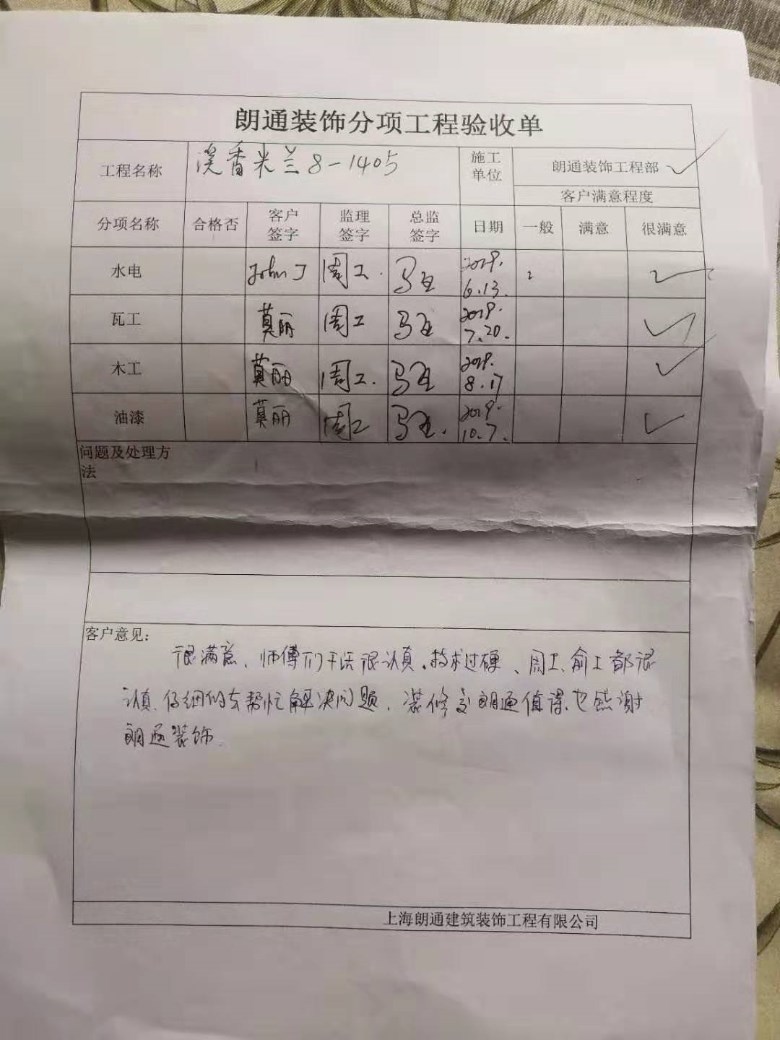 朗通装饰分项工程验收单
工程名称 溪香米兰8-1405 施工单位 朗通装饰工程部
客户满意程度
分项名称 合格否 客户签字 监理签字 总监签字 日期 一般 满意 很满意
水电 John J 周工 2019.6.13.
瓦工 莫丽 周工 2019.7.20.
木工 莫丽 周工. 2019.8.17
油漆 莫丽 周工 2019.10.7.
问题及处理方
法
客户意见:
很满意、师傅们干活很认真。技术过硬、周工、俞工都很
认真、仔细的去帮忙解决问题、装修交朗通值得。也感谢
朗通装饰
上海朗通建筑装饰工程有限公司